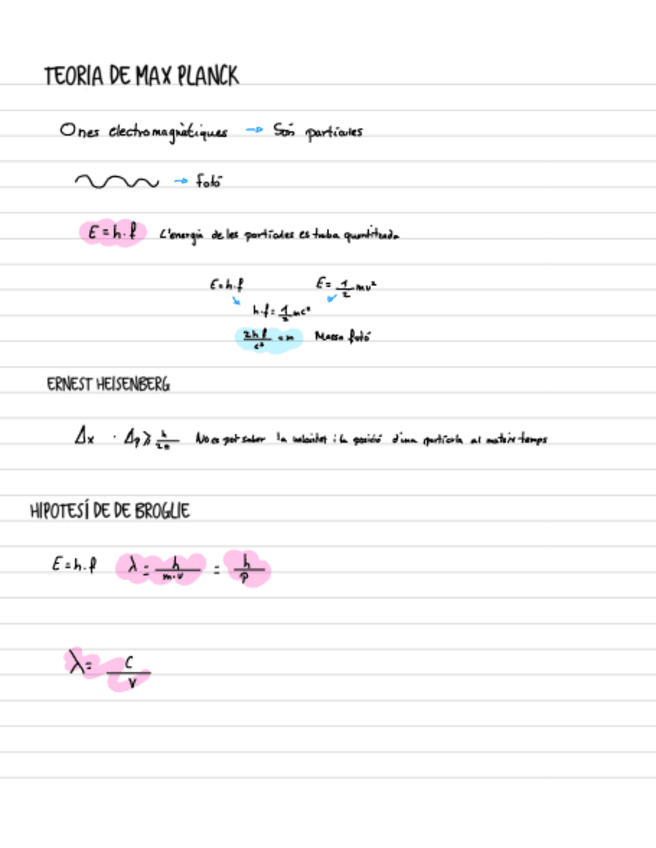 TEORIA DE MAX PLANCK
Ones electromagnètiques → Són partícules
→ fotó
E = h·f L'energia de les partícules es troba quantitzada
E = h·f E = 1/2 mv²
h·f = 1/2 mc²
2hf/c² = m Massa fotó
ERNEST HEISENBERG
Δx · Δp ≥ h/2π No es pot saber la velocitat i la posició d'una partícula al mateix temps
HIPOTESÍ DE DE BROGLIE
E = h·f λ = h/m·v = h/p
λ = c/v